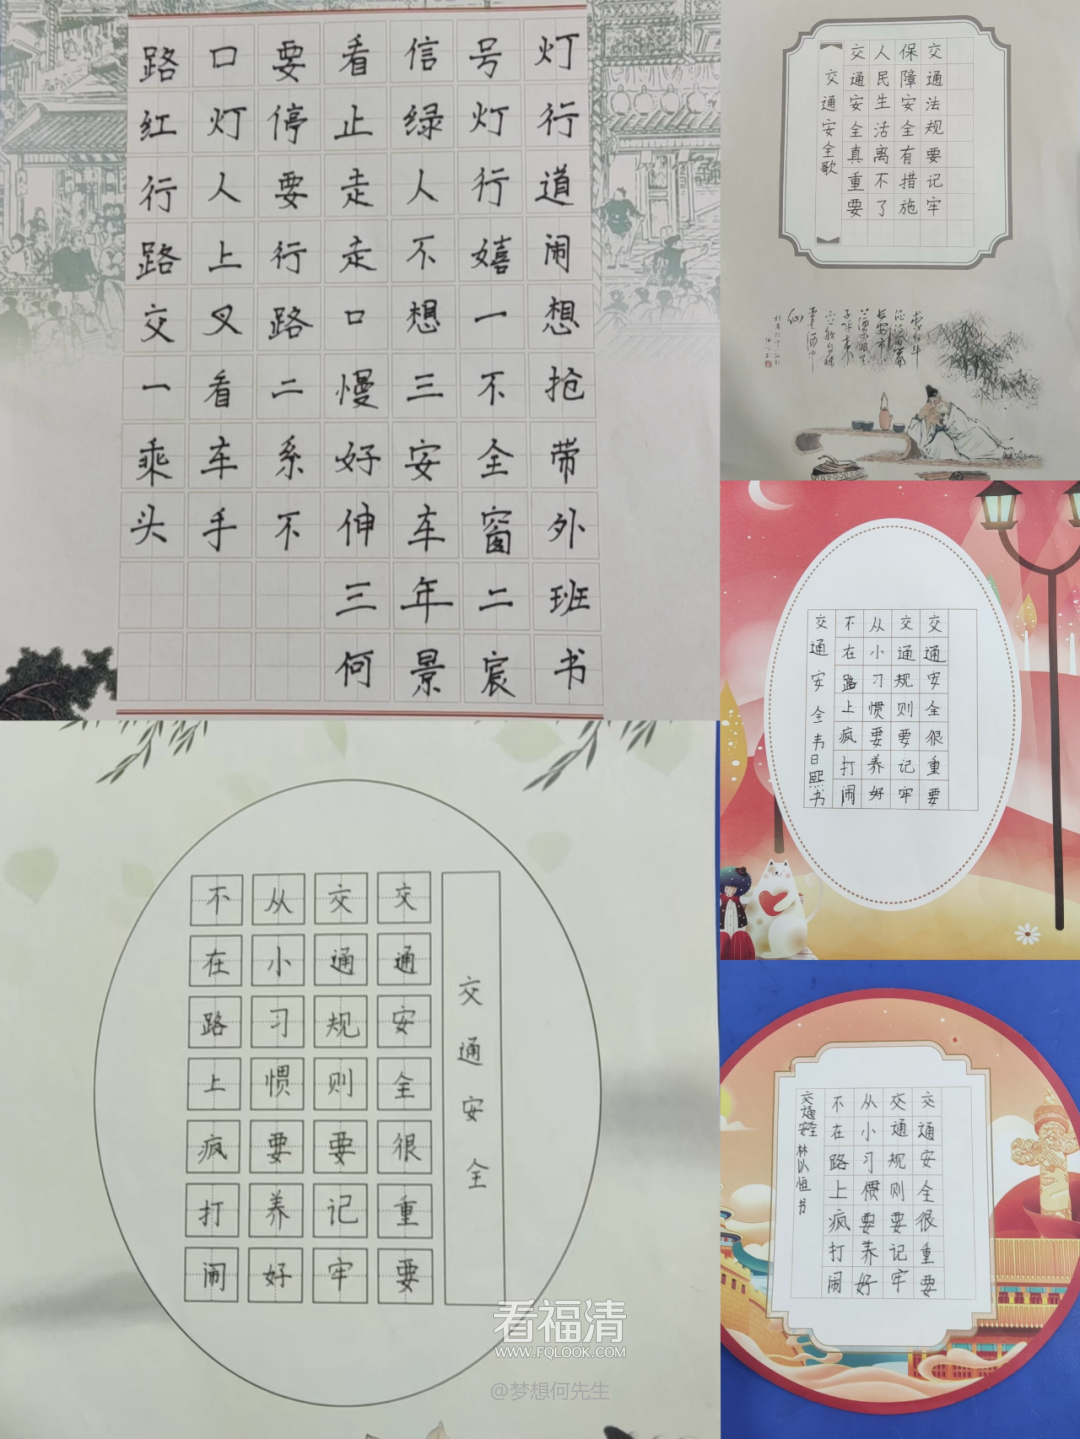 路口要看信号灯
红灯停止绿灯行
行人要走人行道
路上行走不嬉闹
交叉路口想一想
一看二慢三不抢
乘车系好安全带
头手不伸车窗外
三年二班
何景宸书
【交通安全歌】
交通安全真重要
人民生活离不了
保障安全有措施
交通法规要记牢
交通安全很重要
交通规则要记牢
从小习惯要养好
不在路上疯打闹
交通安全韦日熙书
交通安全
交通安全很重要
交通规则要记牢
从小习惯要养好
不在路上疯打闹
交通安全很重要
交通规则要记牢
从小习惯要养好
不在路上疯打闹
交通安全 林以恒书
看福清
WWW.FQLOOK.COM
@梦想何先生